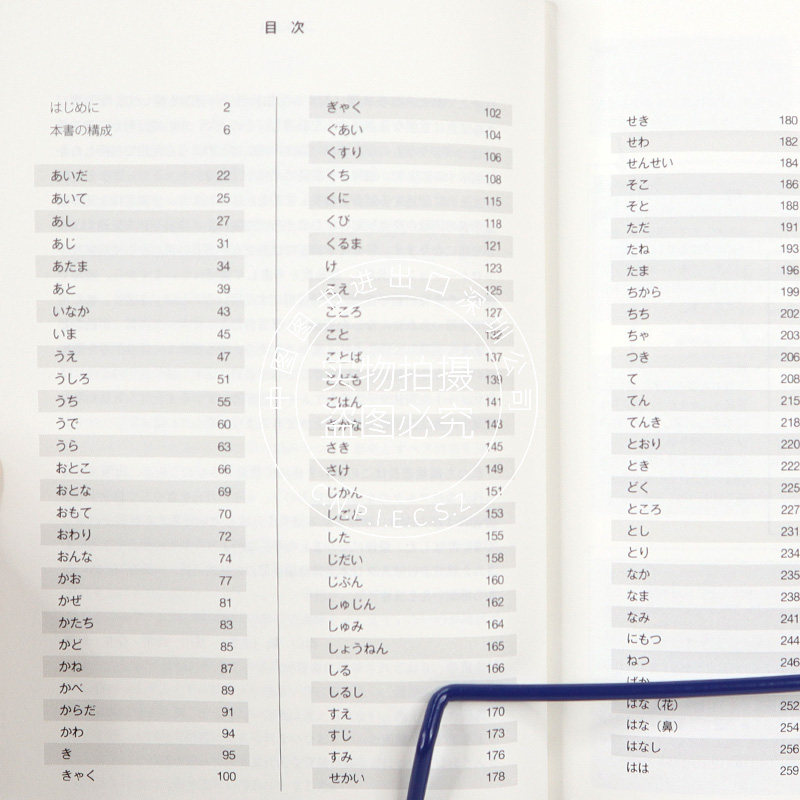 目 次
はじめに 2
本書の構成 6
あいだ 22
あいて 25
あし 27
あじ 31
あたま 34
あと 39
いなか 43
いま 45
うえ 47
うしろ 51
うち 55
うで 60
うら 63
おとこ 66
おとな 69
おもて 70
おわり 72
おんな 74
かお 77
かぜ 81
かたち 83
かど 85
かね 87
かべ 89
からだ 91
かわ 94
き 95
きゃく 100
ぎゃく 102
ぐあい 104
くすり 106
くち 108
くに 115
くび 118
くるま 121
け 123
こえ 125
こころ 127
こと
ことば 137
こども 139
ごはん 141
さかな 143
さき 145
さけ 149
じかん 151
しごと 153
した 155
じだい 158
じぶん 160
しゅじん 162
しゅみ 164
しょうねん 165
しる 166
しるし
すえ 170
すじ 173
すみ 176
せかい 178
せき 180
せわ 182
せんせい 184
そこ 186
そと 188
ただ 191
たね 193
たま 196
ちから 199
ちち 202
ちゃ 203
つき 206
て 208
てん 215
てんき 218
とおり 220
とき 222
どく 225
ところ 227
とし 231
とり 234
なか 235
なま 238
なみ 241
にもつ 244
ねつ 246
はな（花） 252
はな（鼻） 254
はなし 256
はは 259
中国图书进出口深圳公司
实物拍摄
盗图必究
C.N.P.I.E.C.S.Z.